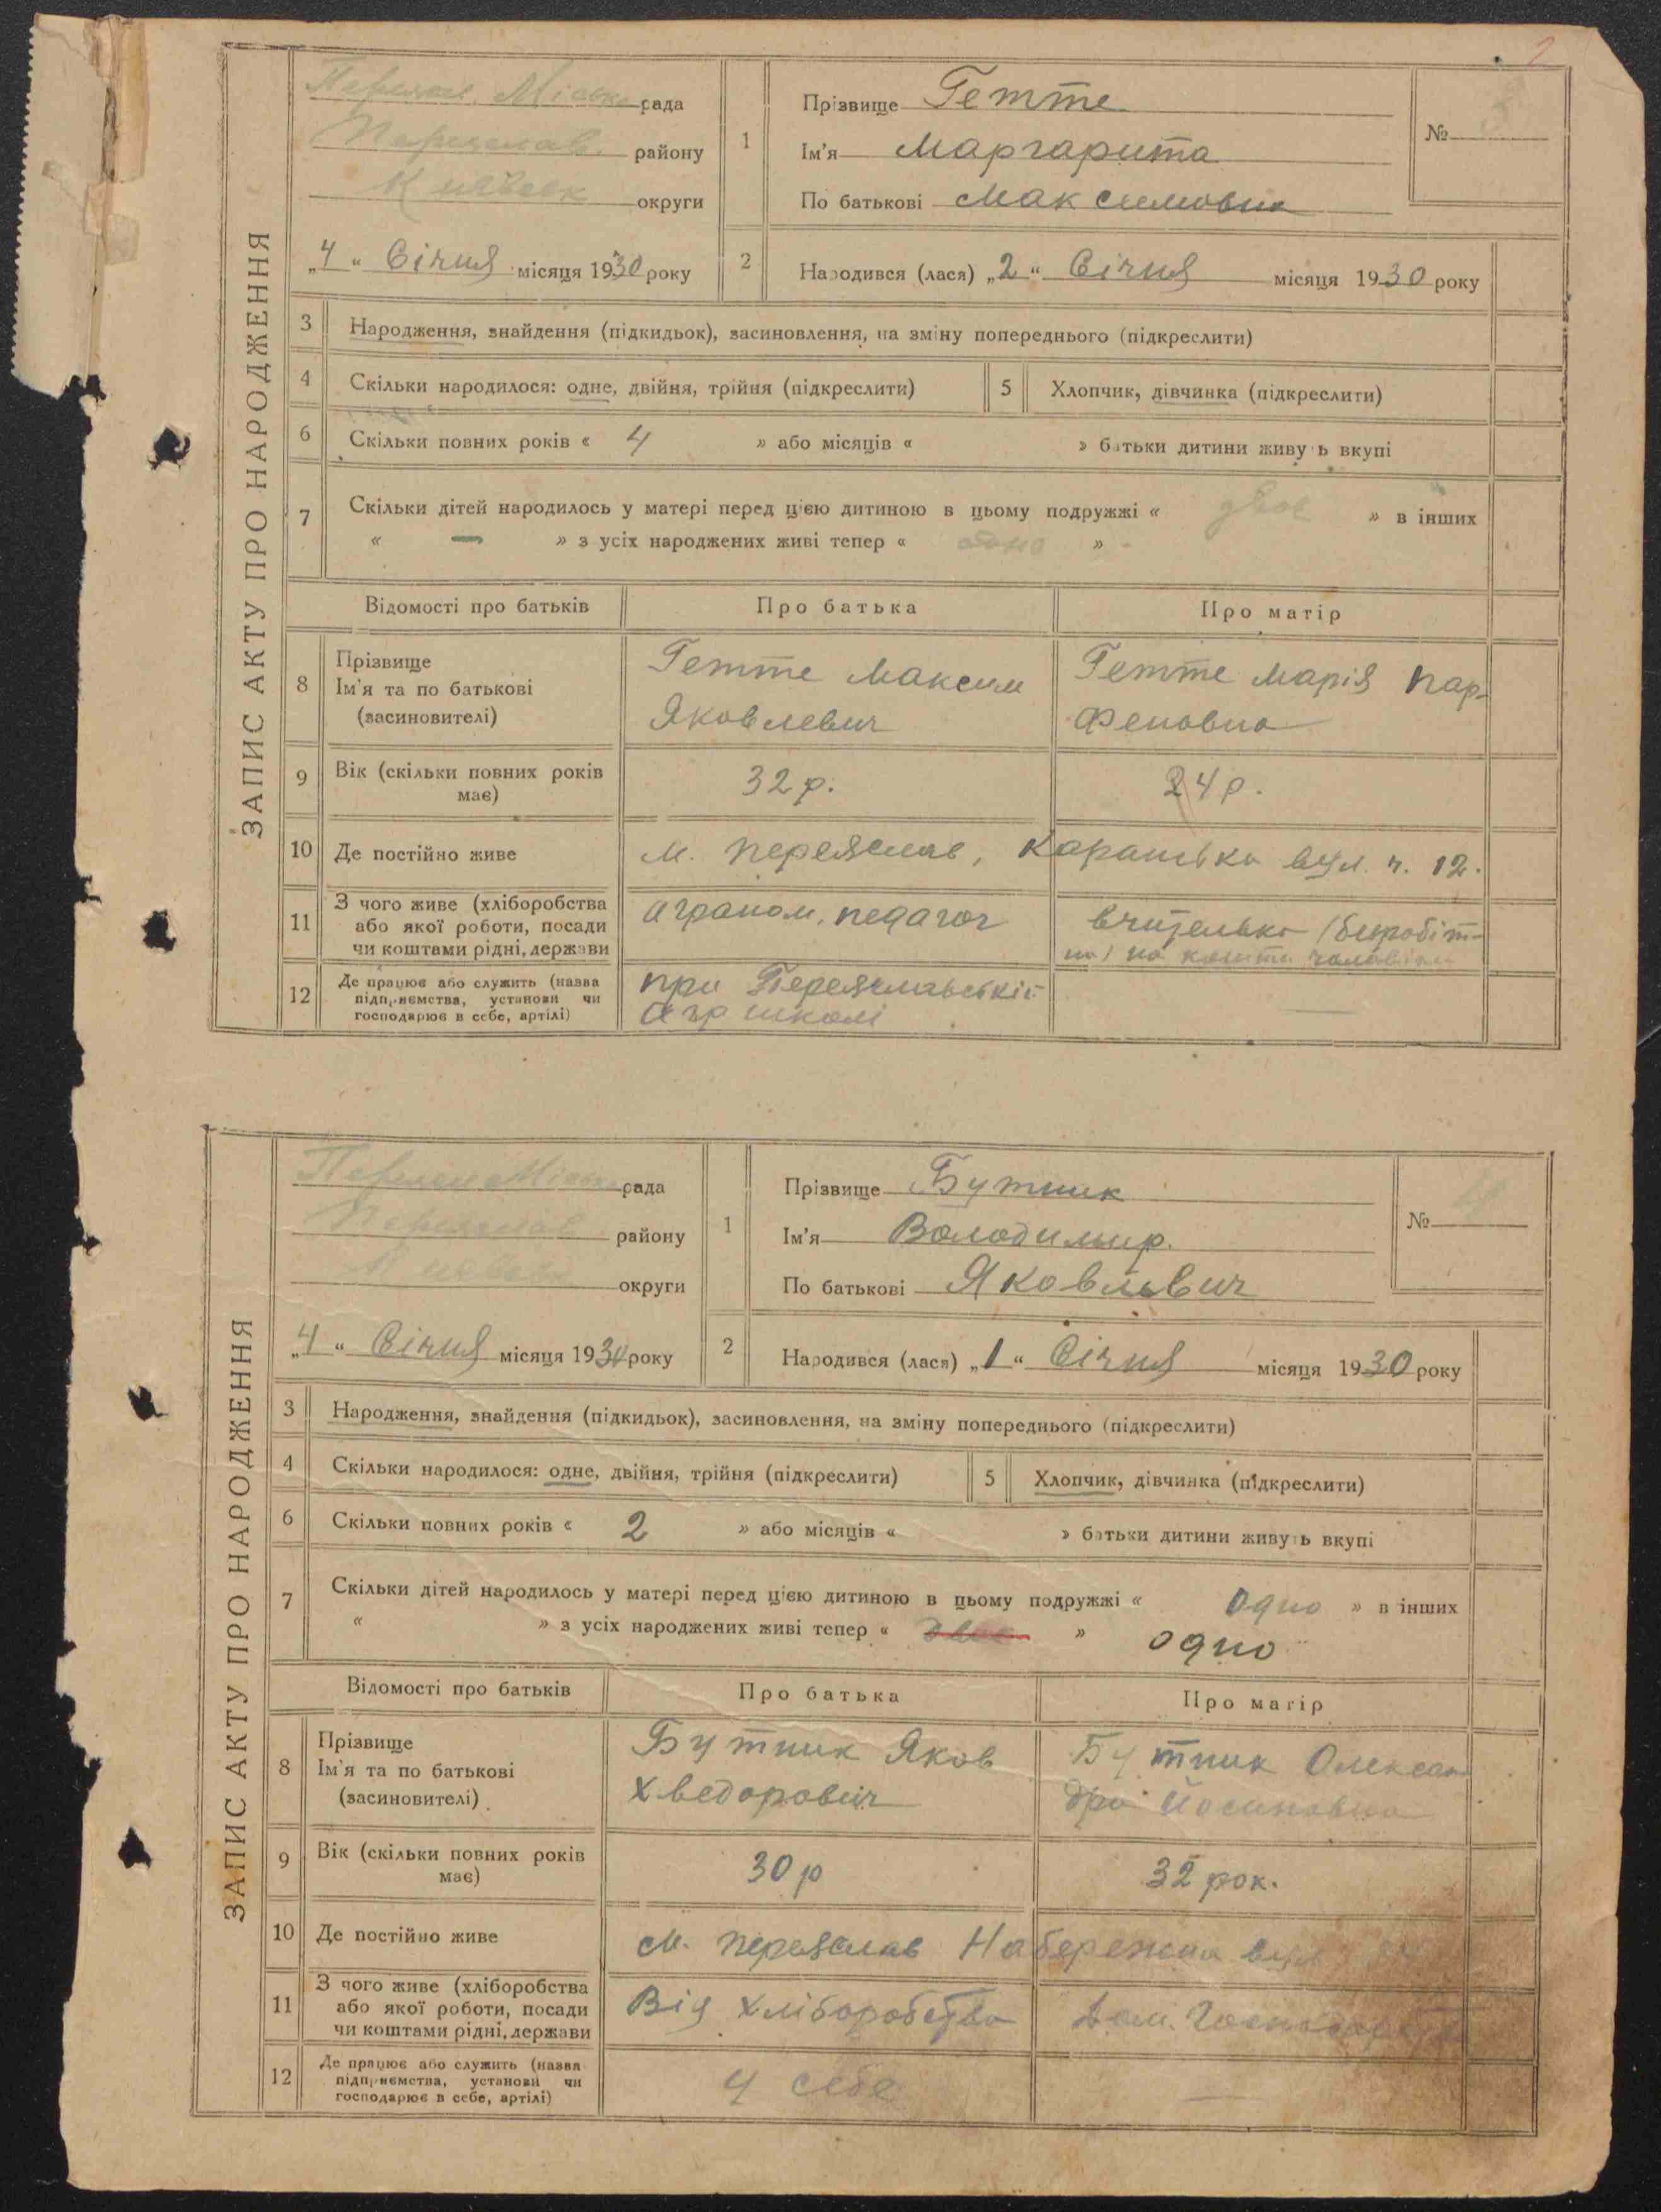 2
ЗАПИС АКТУ ПРО НАРОДЖЕННЯ
Переяс. Міська рада
Переяслав. району
Київськ округи
„4“ Січня місяця 1930 року
1
Прізвище Гетте
Ім'я Маргарита
По батькові Максимовна
№ 3
2 Народився (лася) „2“ Січня місяця 1930 року
3 Народження, знайдення (підкидьок), засиновлення, на зміну попереднього (підкреслити)
4 Скільки народилося: одне, двійня, трійня (підкреслити) 5 Хлопчик, дівчинка (підкреслити)
6 Скільки повних років « 4 » або місяців « » батьки дитини живуть вкупі
7 Скільки дітей народилось у матері перед цією дитиною в цьому подружжі « двоє » в інших
« — » з усіх народжених живі тепер « одно »
Відомості про батьків Про батька Про матір
8 Прізвище
Ім'я та по батькові
(засиновителі)
Гетте Максим
Яковлевич
Гетте Марія Пар-
феновна
9 Вік (скільки повних років
має)
32 р. 24 р.
10 Де постійно живе м. Переяслав, Каратська вул. ч. 12.
11 З чого живе (хліборобства
або якої роботи, посади
чи коштами рідні, держави
агроном, педагог
вчителька (безробіт-
на) на кошти чоловіка
12 Де працює або служить (назва
підприємства, установи чи
господарює в себе, артілі)
при Переяславській
агршколі
—
ЗАПИС АКТУ ПРО НАРОДЖЕННЯ
Переяс Міська рада
Переяслав району
Київськ округи
„4“ Січня місяця 1930 року
1
Прізвище Бутник
Ім'я Володимир.
По батькові Яковлевич
№ 4
2 Народився (лася) „1“ Січня місяця 1930 року
3 Народження, знайдення (підкидьок), засиновлення, на зміну попереднього (підкреслити)
4 Скільки народилося: одне, двійня, трійня (підкреслити) 5 Хлопчик, дівчинка (підкреслити)
6 Скільки повних років « 2 » або місяців « » батьки дитини живуть вкупі
7 Скільки дітей народилось у матері перед цією дитиною в цьому подружжі « одно » в інших
« » з усіх народжених живі тепер « двоє » одно
Відомості про батьків Про батька Про матір
8 Прізвище
Ім'я та по батькові
(засиновителі)
Бутник Яков
Хведорович
Бутник Олексан
дра Йосиповна
9 Вік (скільки повних років
має)
30 р 32 рок.
10 Де постійно живе м. Переяслав Набережна вул
11 З чого живе (хліборобства
або якої роботи, посади
чи коштами рідні, держави
Від хліборобства
Дом. Господарств
12 Де працює або служить (назва
підприємства, установи чи
господарює в себе, артілі)
у себе
—